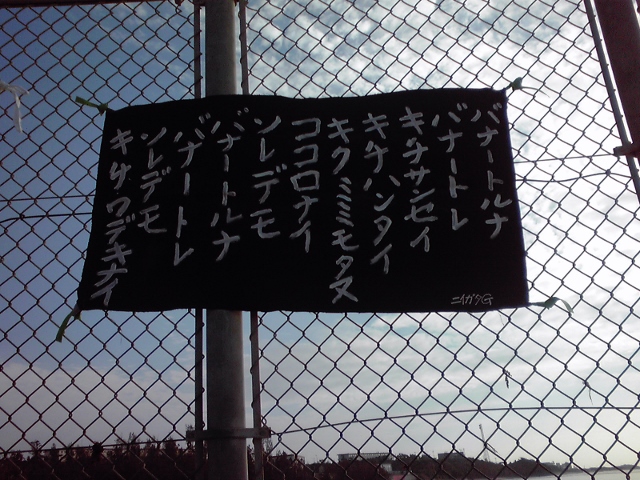 バナートルナ
バナートレ
キチサンセイ
キチハンタイ
キクミミモタヌ
ココロナイ
ソレデモ
バナートルナ
バナートレ
ソレデモ
キサワデキナイ
ニイガタG